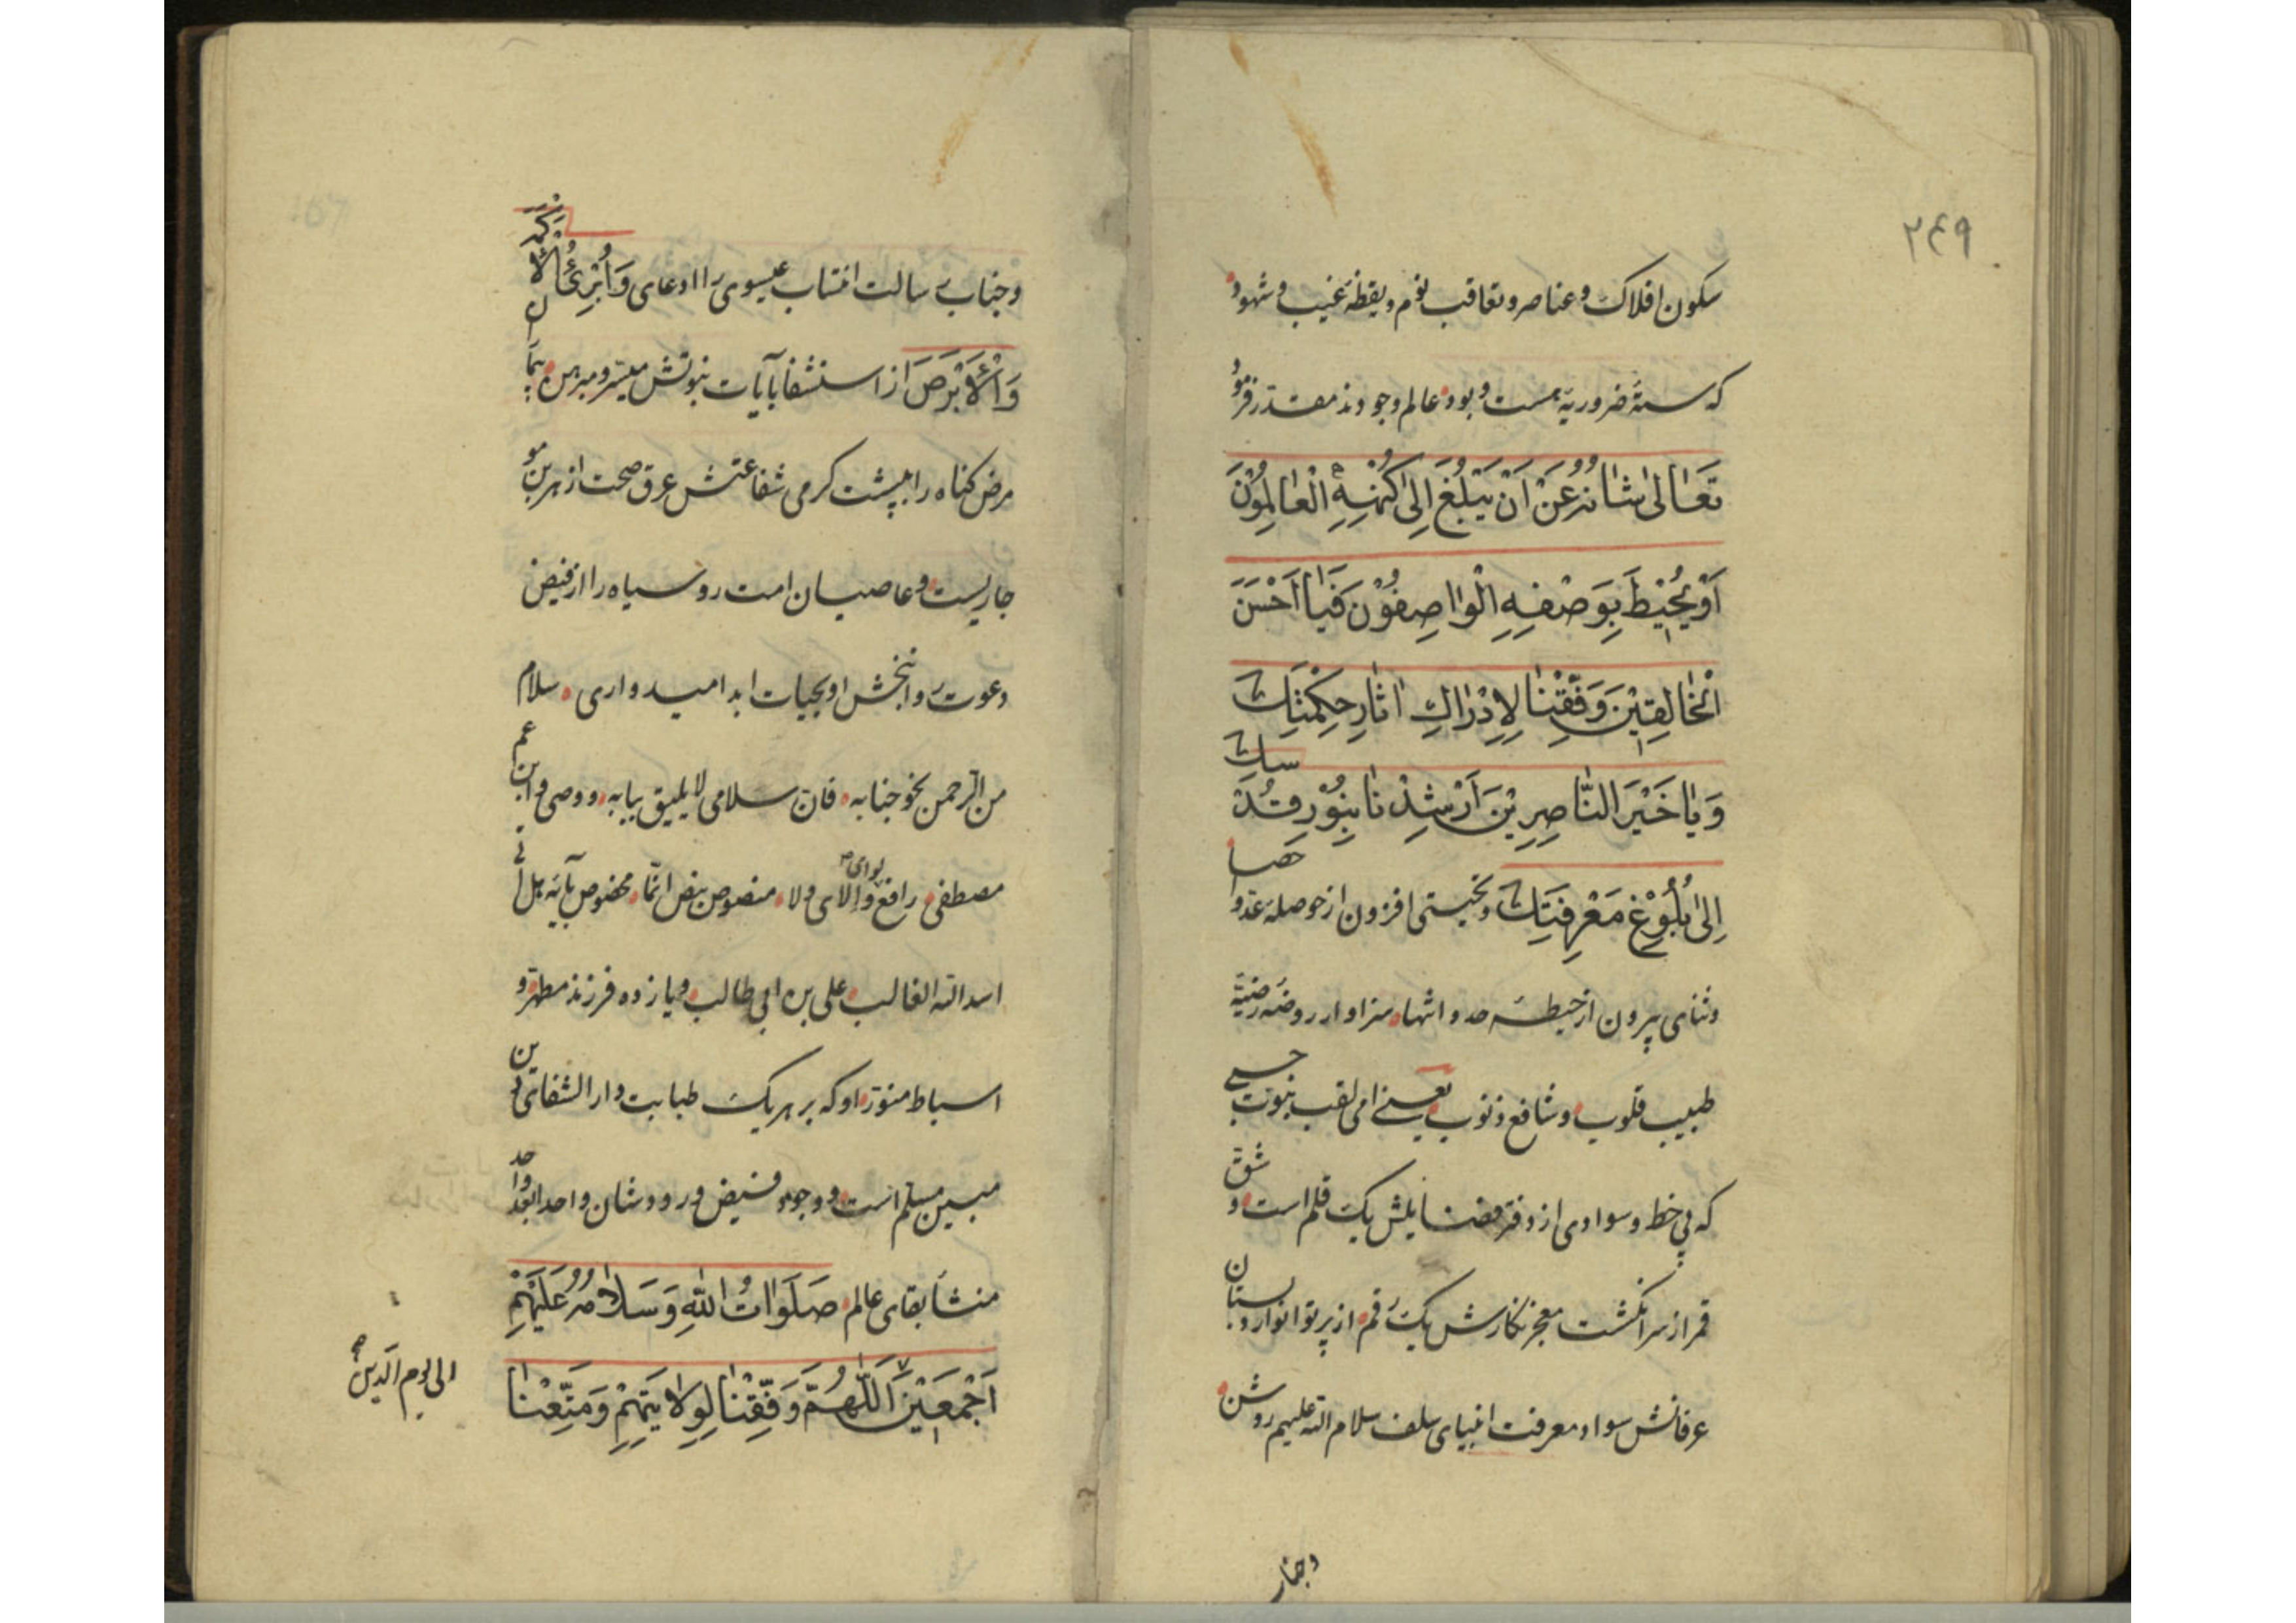 ۲۴۹
سکون افلاک و عناصر و تعاقب نوم و یقظه غیب و شهود
که سته ضروریه هست و بود عالم وجودند مقدر فرمود
تَعَالیٰ شَانُهُ عَنْ اَنْ یَبْلُغَ اِلیٰ کُنْهِهِ الْعَالِمُوْنَ
اَوْ یُحِیْطَ بِوَصْفِهِ الْوَاصِفُوْنَ فَیَا اَحْسَنَ
الْخَالِقِیْنَ وَفِّقْنَا لِاِدْرَاكِ اٰثَارِ حِکْمَتِكَ
وَ یَا خَیْرَ النَّاصِرِیْنَ اَرْشِدْنَا بِنُوْرِ قُدْسِكَ
اِلیٰ بُلُوْغِ مَعْرِفَتِكَ و تحیتی افزون از حوصله عد و احصا
و ثنای بیرون از حیطه حد و انتها سزاوار روضه رضیه
طبیب قلوب و شافع ذنوب یعنی امی لقب نبوت حسبی
که بی خط و سوادی از دفتر فضایلش یک قلم است و شق
قمر از سر انگشت معجز نگارش یک رقم از پرتو انوار دبستان
عرفانش سواد معرفت انبیای سلف سلام الله علیهم روشن
و جناب
و جناب رسالت انتساب عیسوی را ادعای وَ اُبْرِئُ الْاَکْمَهَ
وَ الْاَبْرَصَ از استشفا بآیات نبوتش میسر و مبرهن
مرض گناه را بپشت گرمی شفاعتش عرق صحت از هر بن مو
جاریست و عاصیان امت رو سیاه را از فیض
دعوت روانبخش او بحیات ابد امیدواری سلام
من الرحمن نحو جنابه فان سلامی لا یلیق ببابه و وصی و ابن عم
مصطفی رافع لوای والای ولا منصوص بنص انما مخصوص بآیه هل اتی
اسد الله الغالب علی بن ابی طالب و یازده فرزند مطهر و
اسباط منور او که بر هر یک طبابت دار الشفای دین
مبین مسلم است و وجود فیض ورودشان واحدا بعد واحد
منشأ بقای عالم صَلَوَاتُ اللهِ وَ سَلَامُهُ عَلَیْهِمْ
اَجْمَعِیْنَ اَللّٰهُمَّ وَفِّقْنَا لِوِلَایَتِهِمْ وَ مَتِّعْنَا
الی یوم الدین